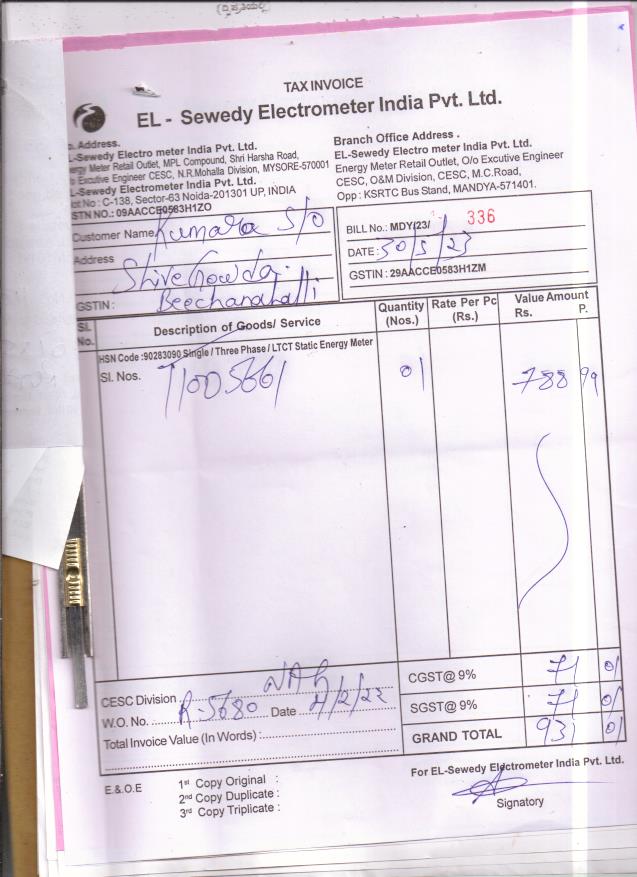 TAX INVOICE
EL - Sewedy Electrometer India Pvt. Ltd.
Address.
L-Sewedy Electro meter India Pvt. Ltd.
ergy Meter Retail Outlet, MPL Compound, Shri Harsha Road,
Excutive Engineer CESC, N.R.Mohalla Division, MYSORE-570001
L-Sewedy Electrometer India Pvt. Ltd.
ot No : C-138, Sector-63 Noida-201301 UP, INDIA
STN NO.: 09AACCE0583H1ZO
Branch Office Address .
EL-Sewedy Electro meter India Pvt. Ltd.
Energy Meter Retail Outlet, O/o Excutive Engineer
CESC, O&M Division, CESC, M.C.Road,
Opp : KSRTC Bus Stand, MANDYA-571401.
Customer Name Kumara S/o
Address Shive Gowda.
GSTIN : Beechanahalli
BILL No.: MDY/23/ 336
DATE : 30/5/23
GSTIN : 29AACCE0583H1ZM
Sl. No. Description of Goods/ Service Quantity (Nos.) Rate Per Pc (Rs.) Value Amount Rs. P.
HSN Code :90283090 Single / Three Phase / LTCT Static Energy Meter
Sl. Nos. 01 788 99
CESC Division
W.O. No. R-5680 Date 4/2/22
Total Invoice Value (In Words) :
CGST@ 9% 71 01
SGST@ 9% 71 01
GRAND TOTAL 931 01
E.& O.E
1st Copy Original :
2nd Copy Duplicate :
3rd Copy Triplicate :
For EL-Sewedy Electrometer India Pvt. Ltd.
Signatory